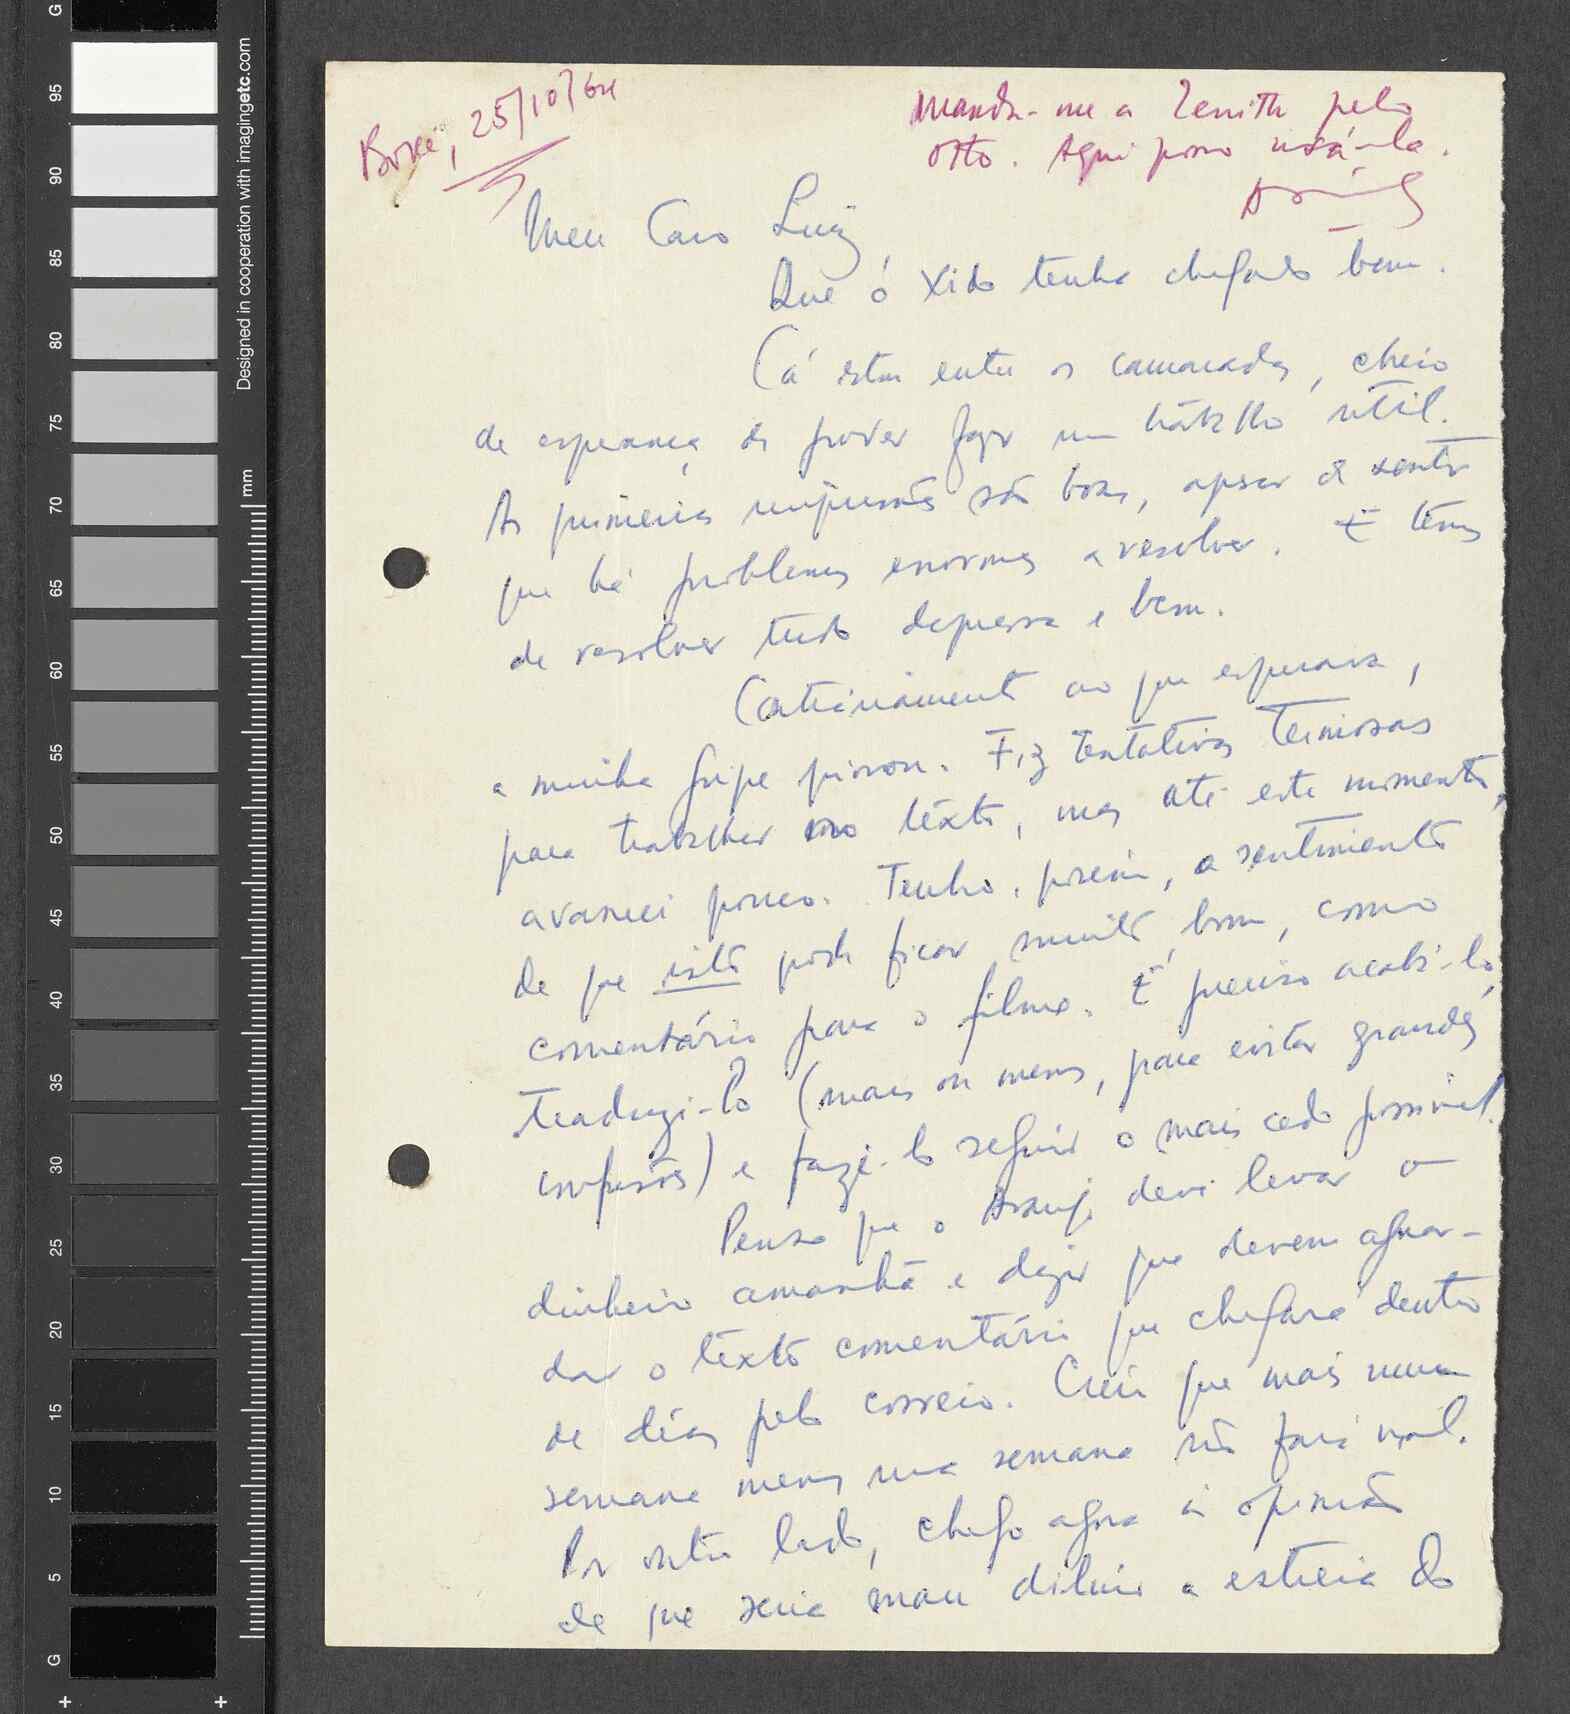 Boké, 25/10/64
Manda-me a Zenith pelo
Otto. Aqui posso usá-la.
Meu Caro Luiz,
Que o Xido tenha chegado bem.
Cá estou entre os camaradas, cheio
de esperança de poder fazer um trabalho útil.
As primeiras impressões são boas, apesar de sentir
que há problemas enormes a resolver. E temos
de resolver tudo depressa e bem.
Contrariamente ao que esperava,
a minha gripe piorou. Fiz tentativas teimosas
para trabalhar no têxto, mas até este momento,
avancei pouco. Tenho, porém, o sentimento
de que isto pode ficar muito bom, como
comentário para o filme. É preciso acabá-lo,
traduzi-lo (mais ou menos, para evitar grandes
confusões) e fazê-lo seguir o mais cedo possivel.
Penso que o Araujo deve levar o
dinheiro amanhã e dizer que devem aguar-
dar o têxto comentário que chegará dentro
de dias pelo correio. Creio que mais uma
semana menos uma semana não fará mal.
Por outro lado, chego agora à opinião
de que seria mau diluir a estreia do
G
95
90
85
80
75
70
65
60
55
50
45
40
35
30
25
20
15
10
5
G
mm
Designed in cooperation with imagingetc.com